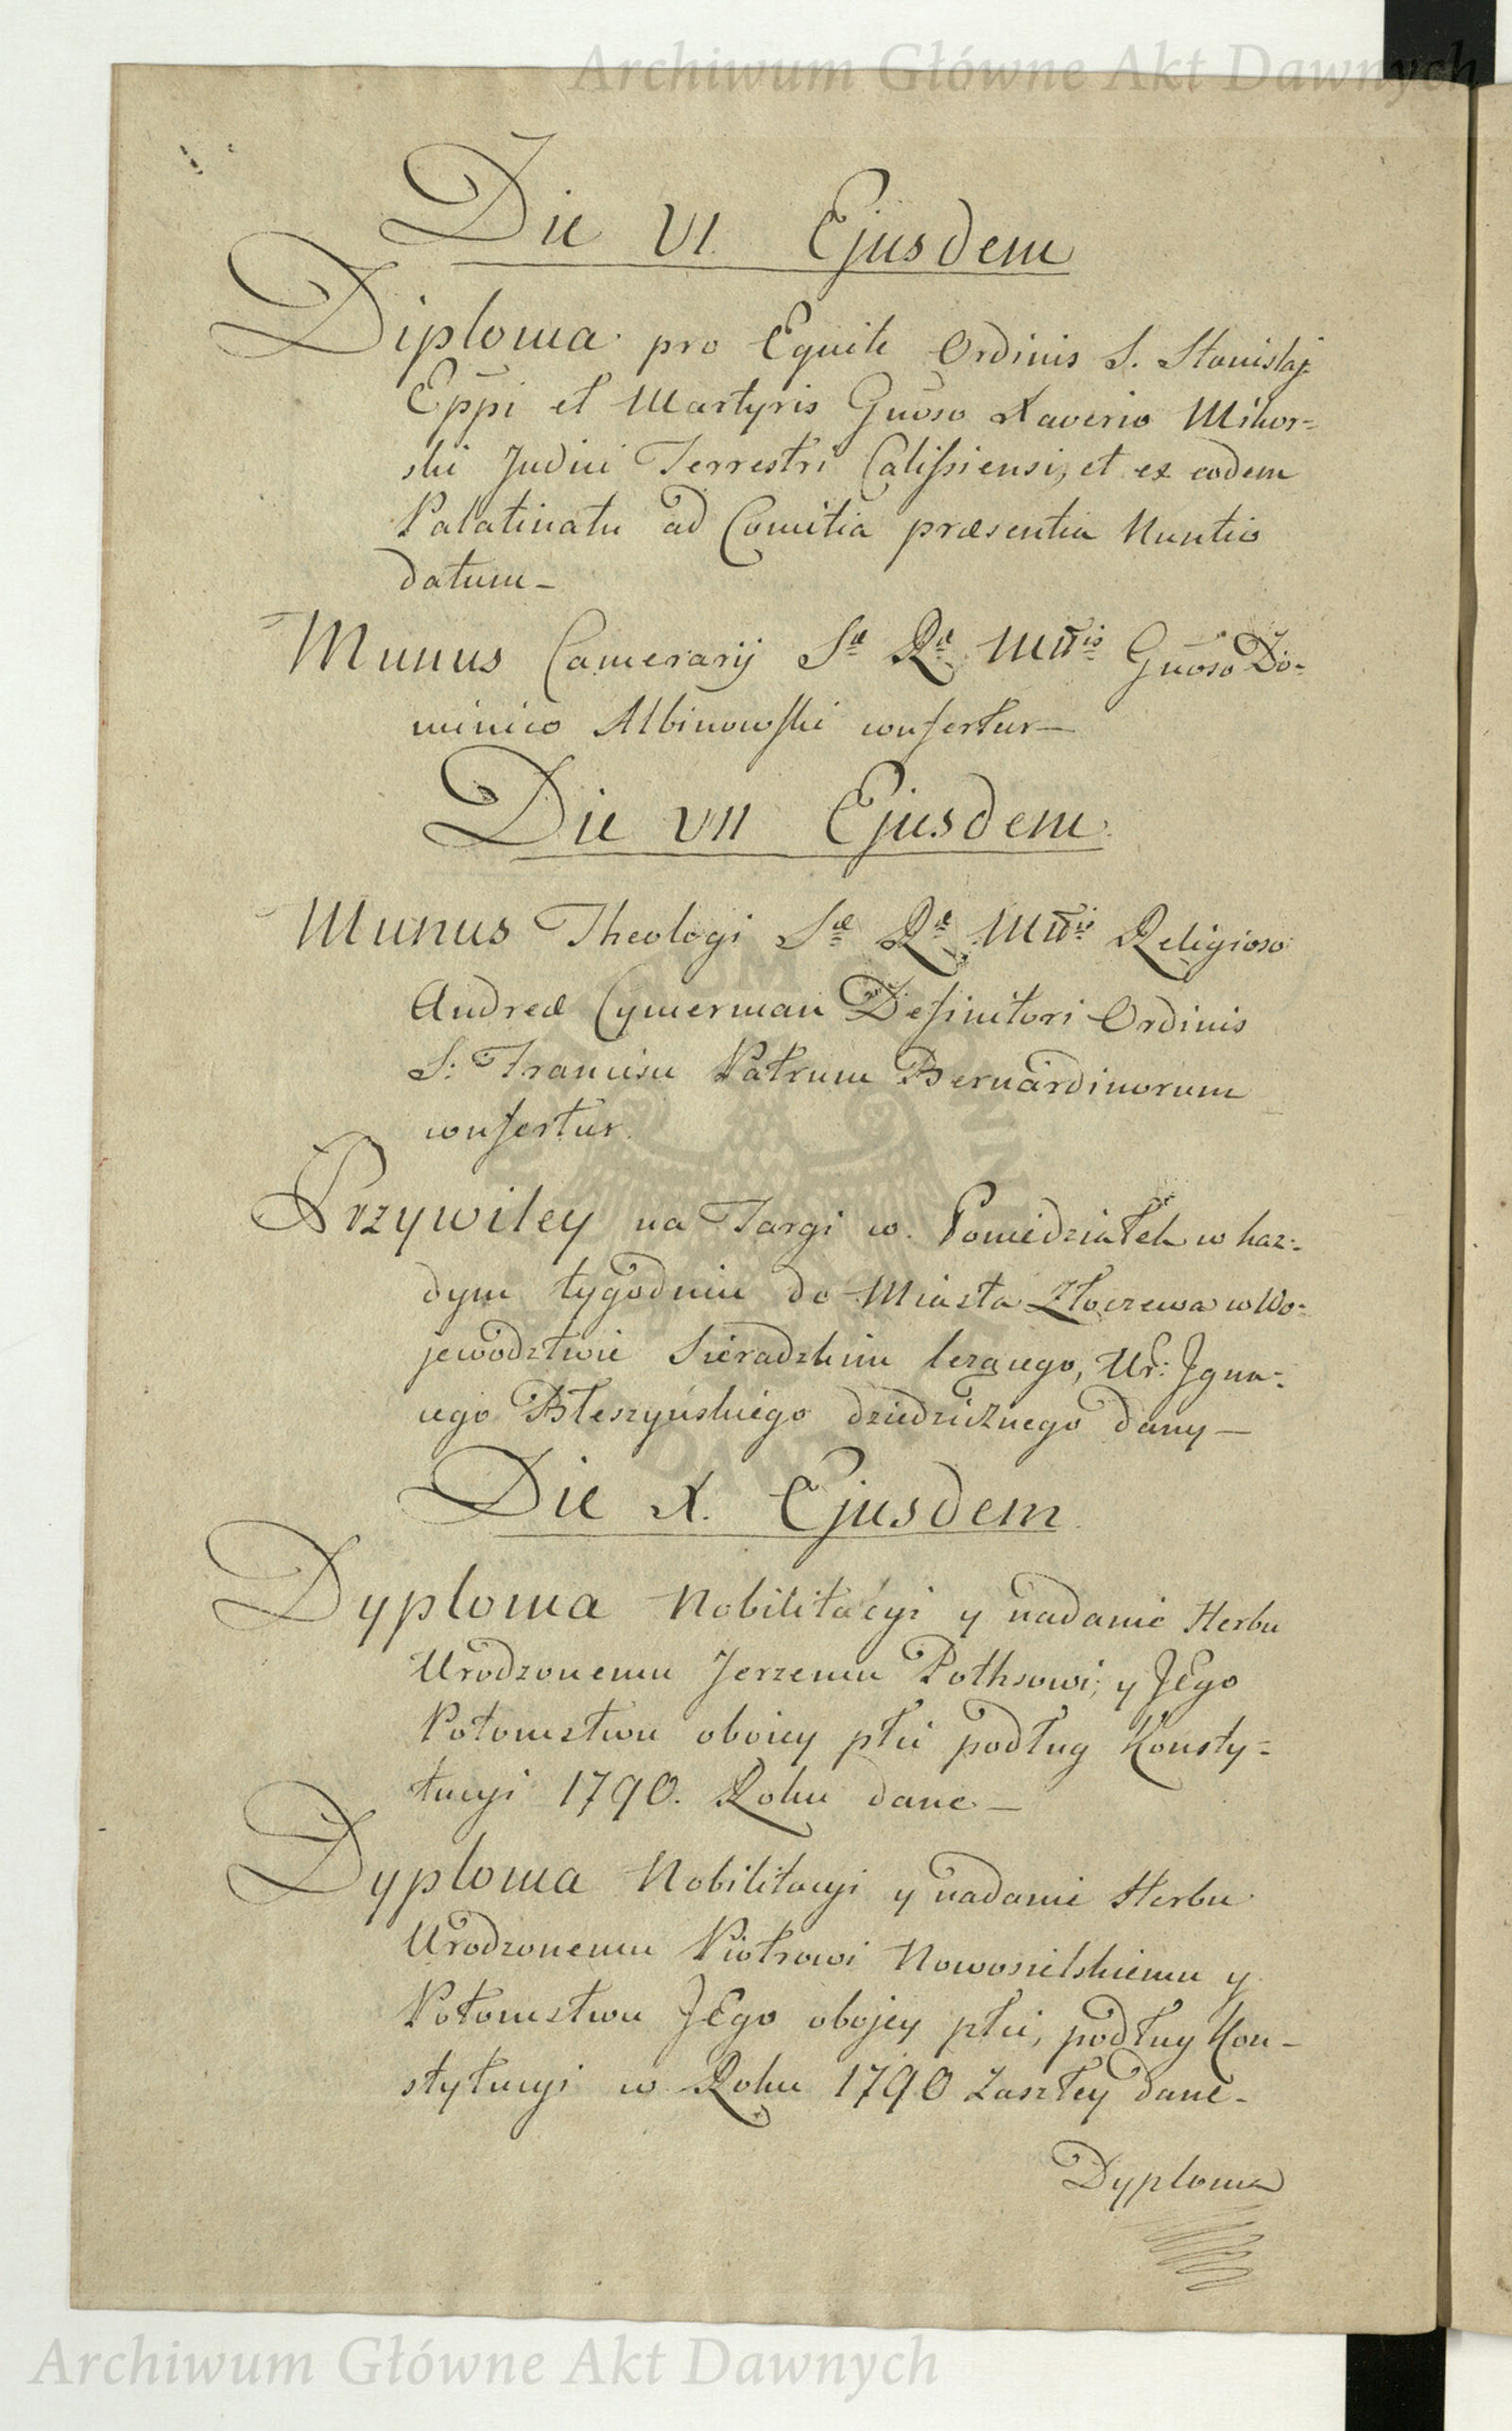 Archiwum Główne Akt Dawnych
Die VI. Ejusdem
Diploma pro Equite Ordinis S. Stanislaj
Eppi et Martyris Gnoso Xaverio Mikor=
ski Judici Terrestri Calissiensi, et ex eodem
Palatinatu ad Comitia præsentia Nuntio
datum_
Munus Camerarij Sæ Ræ Mttis Gnoso Do=
minico Albinowski confertur—
Die VII Ejusdem
Munus Theologi Sæ Ræ Mttis Religioso
Andreæ Cymerman Definitori Ordinis
S: Francisci Patrum Bernardinorum
confertur.
Przywiley na Targi w Poniedziałek w kaz=
dym tygodniu do Miasta Złoczewa w Wo=
jewodztwie Sieradzkim lezącego, Ur: Igna=
cego Błeszyńskiego dziedzicznego dany—
Die X. Ejusdem
Dyploma Nobilitacyi y nadanie Herbu
Urodzonemu Jerzemu Pothsowi, y JEgo
Potomstwu oboiey płci podług Konsty=
tucyi 1790. Roku dane—
Dyploma Nobilitacyi y nadanie Herbu
Urodzonemu Piotrowi Nowosielskiemu y
Potomstwu JEgo obojey płci, podług Kon_
stytucyi w Roku 1790 zaszłey dane_
Dyploma
Archiwum Główne Akt Dawnych